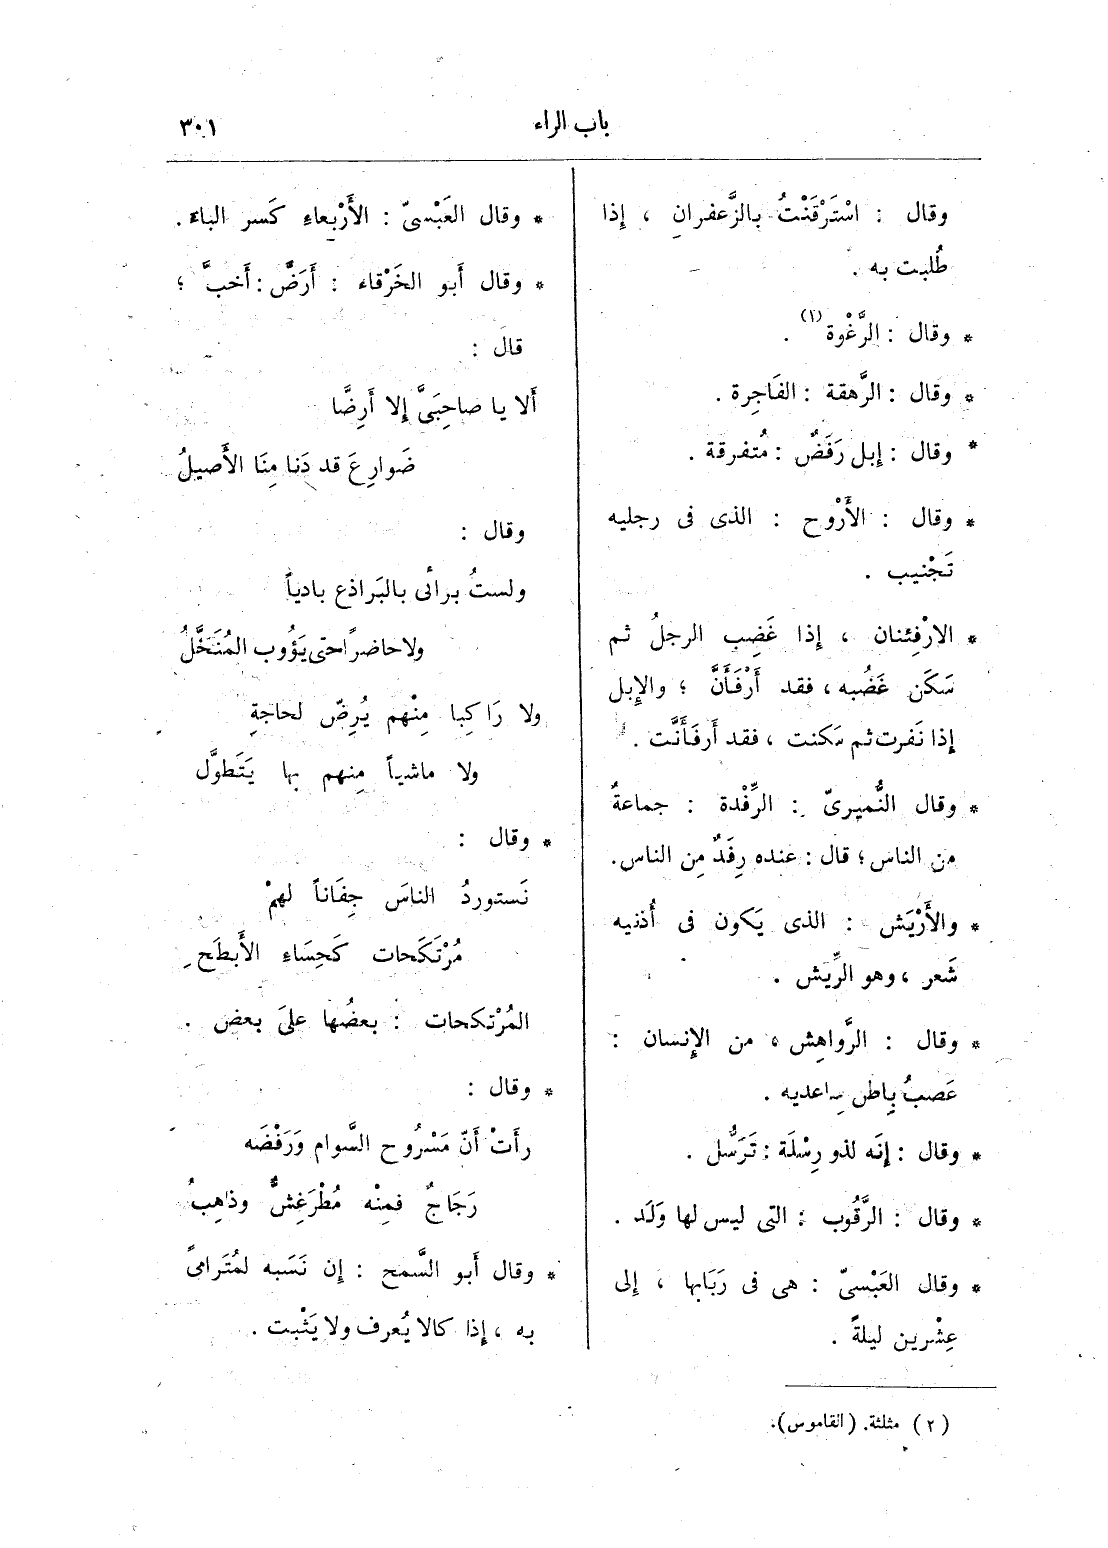 باب الراء
٣٠١
وقال : اسْتَرْقَنْتُ بالزَّعفرانِ ، إذا
طُلبت به .
* وقال : الرَّغْوة (١) .
* وقال : الرَّهقة : الفَاجِرة .
* وقال : إبل رَفَضٌ : مُتفرقة .
* وقال : الأَرْوح : الذى فى رجليه
تَجْنيب .
* الارْفِئنان ، إذا غَضِب الرجلُ ثم
سَكَن غَضُبه ، فقد أَرْفَأَنَّ ؛ والإبل
إذا نَفرت ثم سَكنت ، فقد أَرفَأَنَّت .
* وقال النُّميرىّ : الرِّفْدة : جماعةٌ
من الناس ؛ قال : عنده رِفَدٌ مِن الناس .
* والأَرْيَش : الذى يَكون فى أُذنيه
شَعر ، وهو الرِّيَش .
* وقال : الرَّواهِش ، من الإنسان :
عَصبُ بِاطن سِاعديه .
* وقال : إنَه لذو رِسْلَة : تَرَسُّل .
* وقال : الرَّقُوب : التى ليس لها وَلَد .
* وقال العَبْسىّ : هى فى رَبَابها ، إلى
عِشْرين ليلةً .
* وقال العَبْسىّ : الأَرْبعاءِ كَسر الباء .
* وقال أَبو الخَرْقاء : أَرَضَّ : أَخبَّ ؛
قال :
أَلا يا صاحِبَىَّ إلا أَرِضَّا
ضَوارِعَ قد دَنا مِنَا الأَصيلُ
وقال :
ولستُ برائى بالبَراذع بادياً
ولا حاضرًا حتى يَؤُوب المُنَخَّلُ
ولا رَاكِبا مِنْهم يُرِضّ لحاجةِ
ولا ماشياً مِنهم بها يَتَطوَّل
* وقال :
نَستوردُ الناسَ جِفَاناً لهمْ
مُرْتَكَحات كَحِسَاءِ الأَبطَحِ
المُرْتكحات : بعضُها علىَ بعض .
* وقال :
رأَتْ أَنّ مَسْرُوح السَّوام وَرَفْضَه
رَجَاجٌ فمِنْه مُطْرَغِشٌّ وذاهِبُ
* وقال أَبو السَّمح : إن نَسَبه لمُتَرامىً
به ، إذا كالا يُعرف ولا يَثْبت .
(٢) مثلثة. (القاموس).